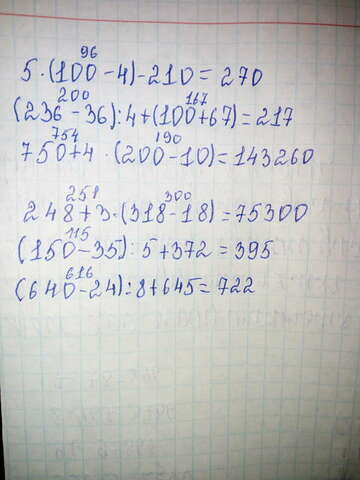 96
5·(100-4)-210=270
200 167
(236-36):4+(100+67)=217
754 190
750+4·(200-10)=143260
251 300
248+3·(318-18)=75300
115
(150-35):5+372=395
616
(640-24):8+645=722